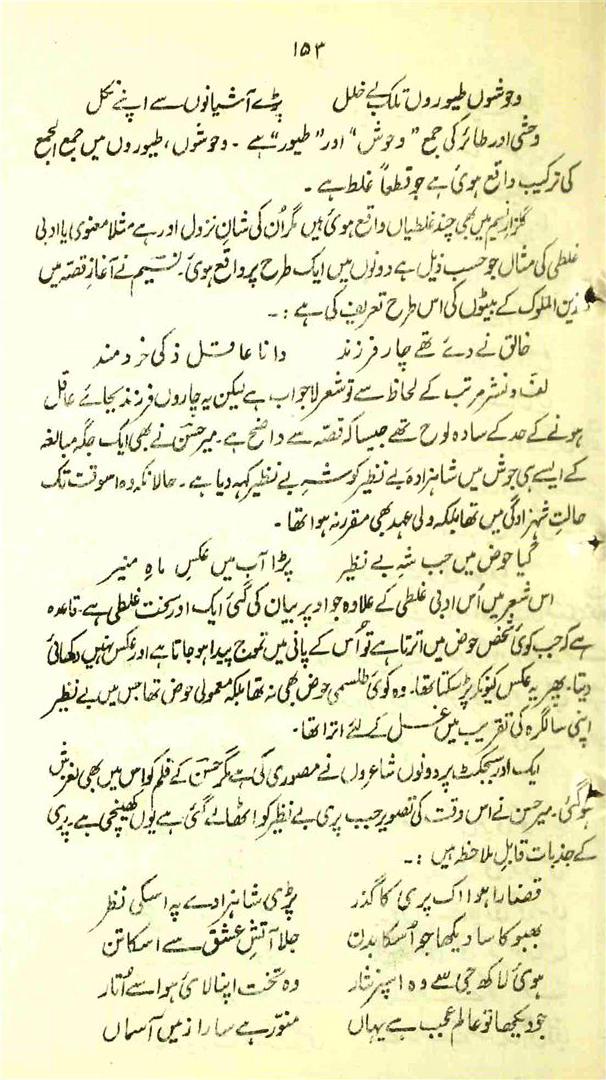 ۱۵۳
وحوشوں طیوروں تلک بے خلل پڑے آشیانوں سے اپنے نکل
وحشی اور طائر کی جمع "وحوش" اور "طیور" ہے ۔ وحوشوں، طیوروں میں جمع الجمع
کی ترکیب واقع ہوئی ہے جو قطعاً غلط ہے ۔
گلزار نسیم میں بھی چند غلطیاں واقع ہوئی ہیں مگر اُن کی شانِ نزول اور ہے مثلاً معنوی یا ادبی
غلطی کی مثال جو حسب ذیل ہے دونوں میں ایک طرح پر واقع ہوئی۔ نسیم نے آغازِ قصّہ میں
زین الملوک کے بیٹوں کی اس طرح تعریف کی ہے :۔
خالق نے دئے تھے چار فرزند دانا عاقل ذکی خردمند
لف و نشر مرتب کے لحاظ سے تو شعر لاجواب ہے لیکن یہ چاروں فرزند بجائے عاقل
ہونے کے حد کے سادہ لوح تھے جیسا کہ قصّہ سے واضح ہے۔ میر حسنؔ نے بھی ایک جگہ مبالغہ
کے ایسے ہی جوش میں شاہزادہ بے نظیر کو شہِ بے نظیر کہہ دیا ہے ۔ حالانکہ وہ اسوقت تک
حالتِ شہزادگی میں تھا بلکہ ولی عہد بھی مقرر نہ ہوا تھا ۔
گیا حوض میں جب شہِ بے نظیر پڑا آب میں عکسِ ماہِ منیر
اس شعر میں اُس ادبی غلطی کے علاوہ جو اوپر بیان کی گئی ایک اور سخت غلطی ہے۔ قاعدہ
ہے کہ جب کوئی شخص حوض میں اترتا ہے تو اُس کے پانی میں تموج پیدا ہو جاتا ہے اور عکس نہیں دکھائی
دیتا۔ پھر یہ عکس کیونکر پڑ سکتا تھا۔ وہ کوئی طلسمی حوض بھی نہ تھا بلکہ معمولی حوض تھا جس میں بے نظیر
اپنی سالگرہ کی تقریب میں غسل کے لئے اترا تھا۔
ایک اور سبجکٹ پر دونوں شاعروں نے مصوری کی ہے مگر حسنؔ کے قلم کو اس میں بھی لغزش
ہو گئی۔ میر حسن نے اس وقت کی تصویر جب پری بے نظیر کو اٹھا لے گئی ہے یوں کھینچی ہے۔ پری
کے جذبات قابلِ ملاحظہ ہیں :۔
قضارا ہوا اک پری کا گذر پڑی شاہزادے پہ اسکی نظر
بھبوکا سا دیکھا جو اُسکا بدن جلا آتشِ عشق سے اسکا تن
ہوئی لاکھ جی سے وہ اسپر نثار وہ تخت اپنا لائی ہوا سے اُتار
جو دیکھا تو عالم عجب ہے یہاں منوّر ہے سارا زمیں آسماں